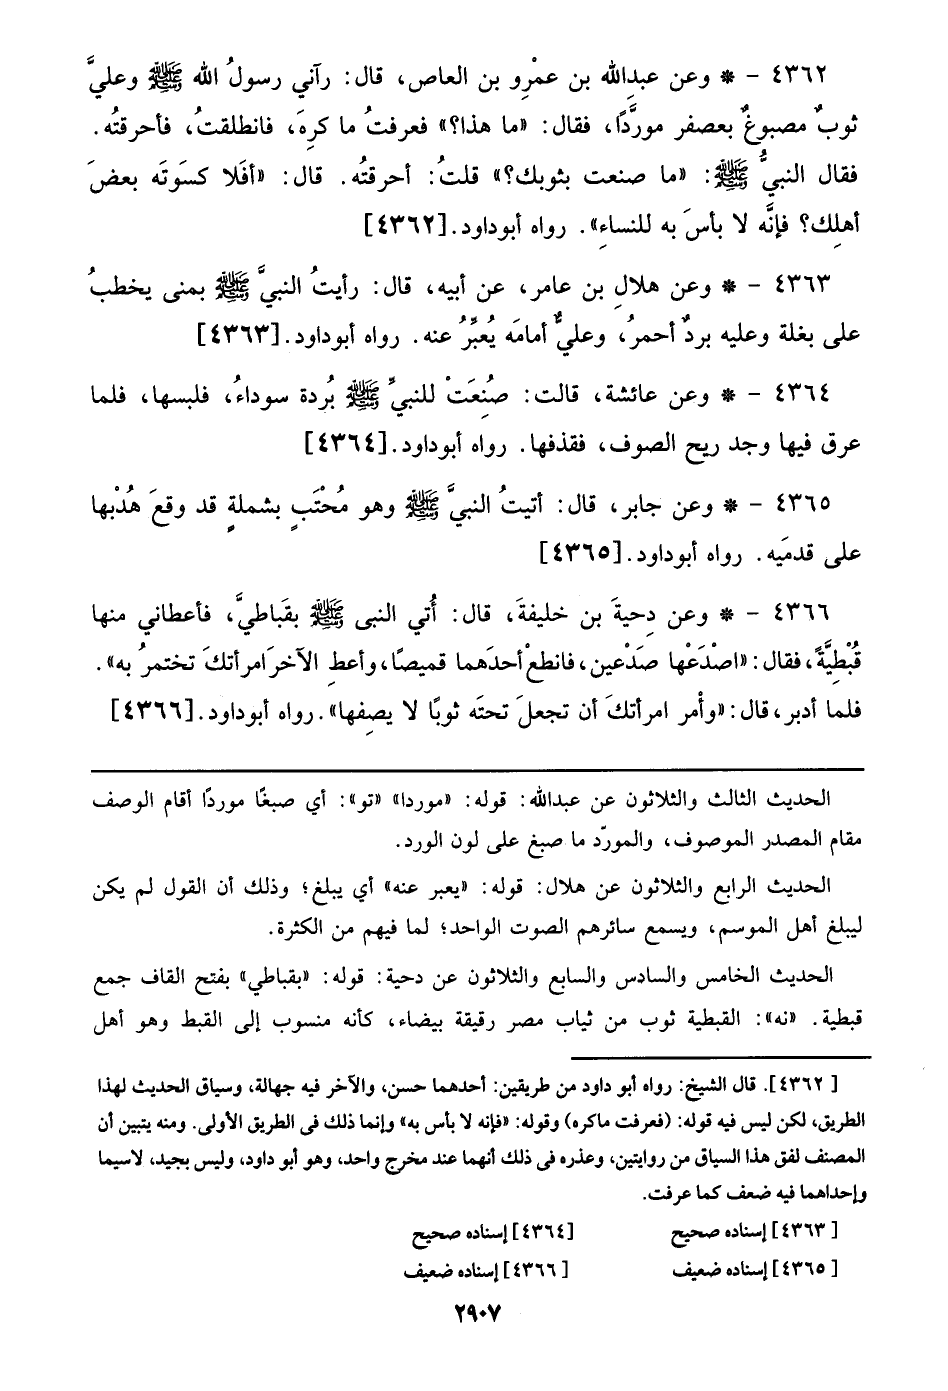 ٤٣٦٢ – * وعن عبدالله بن عمْرِو بن العاص، قال: رآني رسولُ الله ﷺ وعليَّ
ثوبٌ مصبوغٌ بعصفر مورَّدًا، فقال: «ما هذا؟» فعرفتُ ما كرِهَ، فانطلقتُ، فأحرقتُه.
فقال النبيُّ ﷺ: «ما صنعت بثوبك؟» قلتُ: أحرقتُه. قال: «أفَلا كسَوتَه بعضَ
أهلِك؟ فإنَّه لا بأسَ به للنساءِ». رواه أبوداود.[٤٣٦٢]
٤٣٦٣ – * وعن هلالِ بن عامر، عن أبيه، قال: رأيتُ النبيَّ ﷺ بمنى يخطبُ
على بغلة وعليه بردٌ أحمرُ، وعليٌّ أمامَه يُعبِّرُ عنه. رواه أبوداود.[٤٣٦٣]
٤٣٦٤ – * وعن عائشة، قالت: صُنِعَتْ للنبيِّ ﷺ بُردة سوداءُ، فلبسها، فلما
عرق فيها وجد ريح الصوف، فقذفها. رواه أبوداود.[٤٣٦٤]
٤٣٦٥ – * وعن جابر، قال: أتيتُ النبيَّ ﷺ وهو مُحْتَبٍ بشملةٍ قد وقعَ هُدْبها
على قدمَيه. رواه أبوداود.[٤٣٦٥]
٤٣٦٦ – * وعن دحيةَ بن خليفةَ، قال: أُتي النبى ﷺ بقَباطيَّ، فأعطاني منها
قُبْطِيَّةً، فقال: «اصْدَعْها صَدْعين، فانطعْ أحدَهما قميصًا، وأعطِ الآخرَ امرأتكَ تختمرُ به».
فلما أدبر، قال: «وأْمر امرأتكَ أن تجعلَ تحتَه ثوبًا لا يصفِها». رواه أبوداود.[٤٣٦٦]
الحديث الثالث والثلاثون عن عبدالله: قوله: «موردا» «تو»: أي صبغًا موردًا أقام الوصف
مقام المصدر الموصوف، والمورّد ما صبغ على لون الورد.
الحديث الرابع والثلاثون عن هلال: قوله: «يعبر عنه» أي يبلغ؛ وذلك أن القول لم يكن
ليبلغ أهل الموسم، ويسمع سائرهم الصوت الواحد؛ لما فيهم من الكثرة.
الحديث الخامس والسادس والسابع والثلاثون عن دحية: قوله: «بقباطي» بفتح القاف جمع
قبطية. «نه»: القبطية ثوب من ثياب مصر رقيقة بيضاء، كأنه منسوب إلى القبط وهو أهل
[٤٣٦٢]. قال الشيخ: رواه أبو داود من طريقين: أحدهما حسن، والآخر فيه جهالة، وسياق الحديث لهذا
الطريق، لكن ليس فيه قوله: (فعرفت ماكره) وقوله: «فإنه لا بأس به» وإنما ذلك فى الطريق الأولى. ومنه يتبين أن
المصنف لفق هذا السياق من روايتين، وعذره فى ذلك أنهما عند مخرج واحد، وهو أبو داود، وليس بجيد، لاسيما
وإحداهما فيه ضعف كما عرفت.
[٤٣٦٣] إسناده صحيح [٤٣٦٤] إسناده صحيح
[٤٣٦٥] إسناده ضعيف [٤٣٦٦] إسناده ضعيف
٢٩٠٧